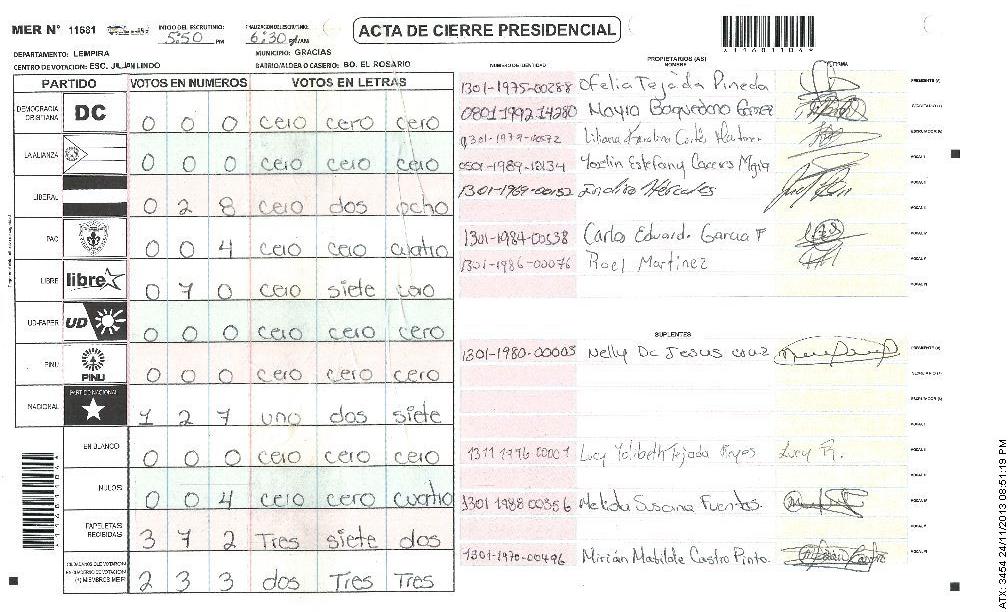 MER Nº 11681 INICIO DEL ESCRUTINIO: 5:50 PM FINALIZACION DEL ESCRUTINIO: 6:30 ACTA DE CIERRE PRESIDENCIAL
DEPARTAMENTO: LEMPIRA MUNICIPIO: GRACIAS
CENTRO DE VOTACION: ESC. JULIAN LINDO BARRIO/ALDEA O CASERIO: BO. EL ROSARIO
PARTIDO VOTOS EN NUMEROS VOTOS EN LETRAS
DEMOCRACIA CRISTIANA DC 0 0 0 cero cero cero
LA ALIANZA 0 0 0 cero cero cero
LIBERAL 0 2 8 cero dos ocho
PAC 0 0 4 cero cero cuatro
LIBRE libre 0 7 0 cero siete cero
UD-FAPER UD 0 0 0 cero cero cero
PINU PINU 0 0 0 cero cero cero
NACIONAL PARTIDO NACIONAL 1 2 7 uno dos siete
EN BLANCO 0 0 0 cero cero cero
NULOS 0 0 4 cero cero cuatro
PAPELETAS RECIBIDAS 3 7 2 Tres siete dos
2 3 3 dos Tres Tres
PROPIETARIOS (AS)
NUMERO DE IDENTIDAD NOMBRE FIRMA
1301-1975-00288 Ofelia Tejada Pineda PRESIDENTE (A)
0801 1992 14280 SECRETARIO (A)
1301-1979-00572 Liliana Karolina Cortés ESCRUTADOR (A)
0501-1989-12134 Yoslin Estefany Caceres Mejia VOCAL I
1301-1969-00152 VOCAL II
1301-1984-00538 Carlos Eduardo Garcia F VOCAL IV
1301-1986-00076 Roel Martinez VOCAL V
SUPLENTES
1301-1980-00003 Nelly De Jesus Cruz PRESIDENTE (A)
SECRETARIO (A)
ESCRUTADOR (A)
1311 1976 00001 Lucy Yolibeth Tejada Reyes Lucy R.
1301 1988 00356 Melida Susana Fuentes.
1301-1970-00496 Mirian Matilde Castro Pinto
ATX: 3454 24/11/2013 08:51:19 PM